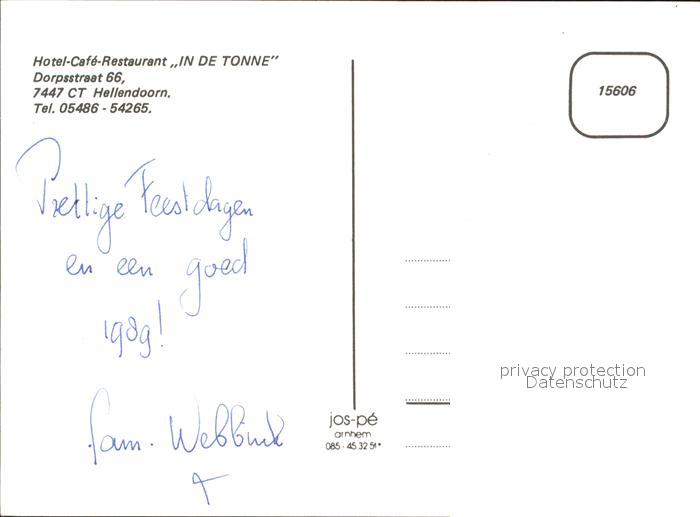 Hotel-Café-Restaurant „IN DE TONNE”
Dorpsstraat 66,
7447 CT Hellendoorn.
Tel. 05486 - 54265.
15606
Prettige Feestdagen
en een goed
1989!
fam. Webbink
jos-pé
arnhem
085 - 45 32 51*
privacy protection
Datenschutz